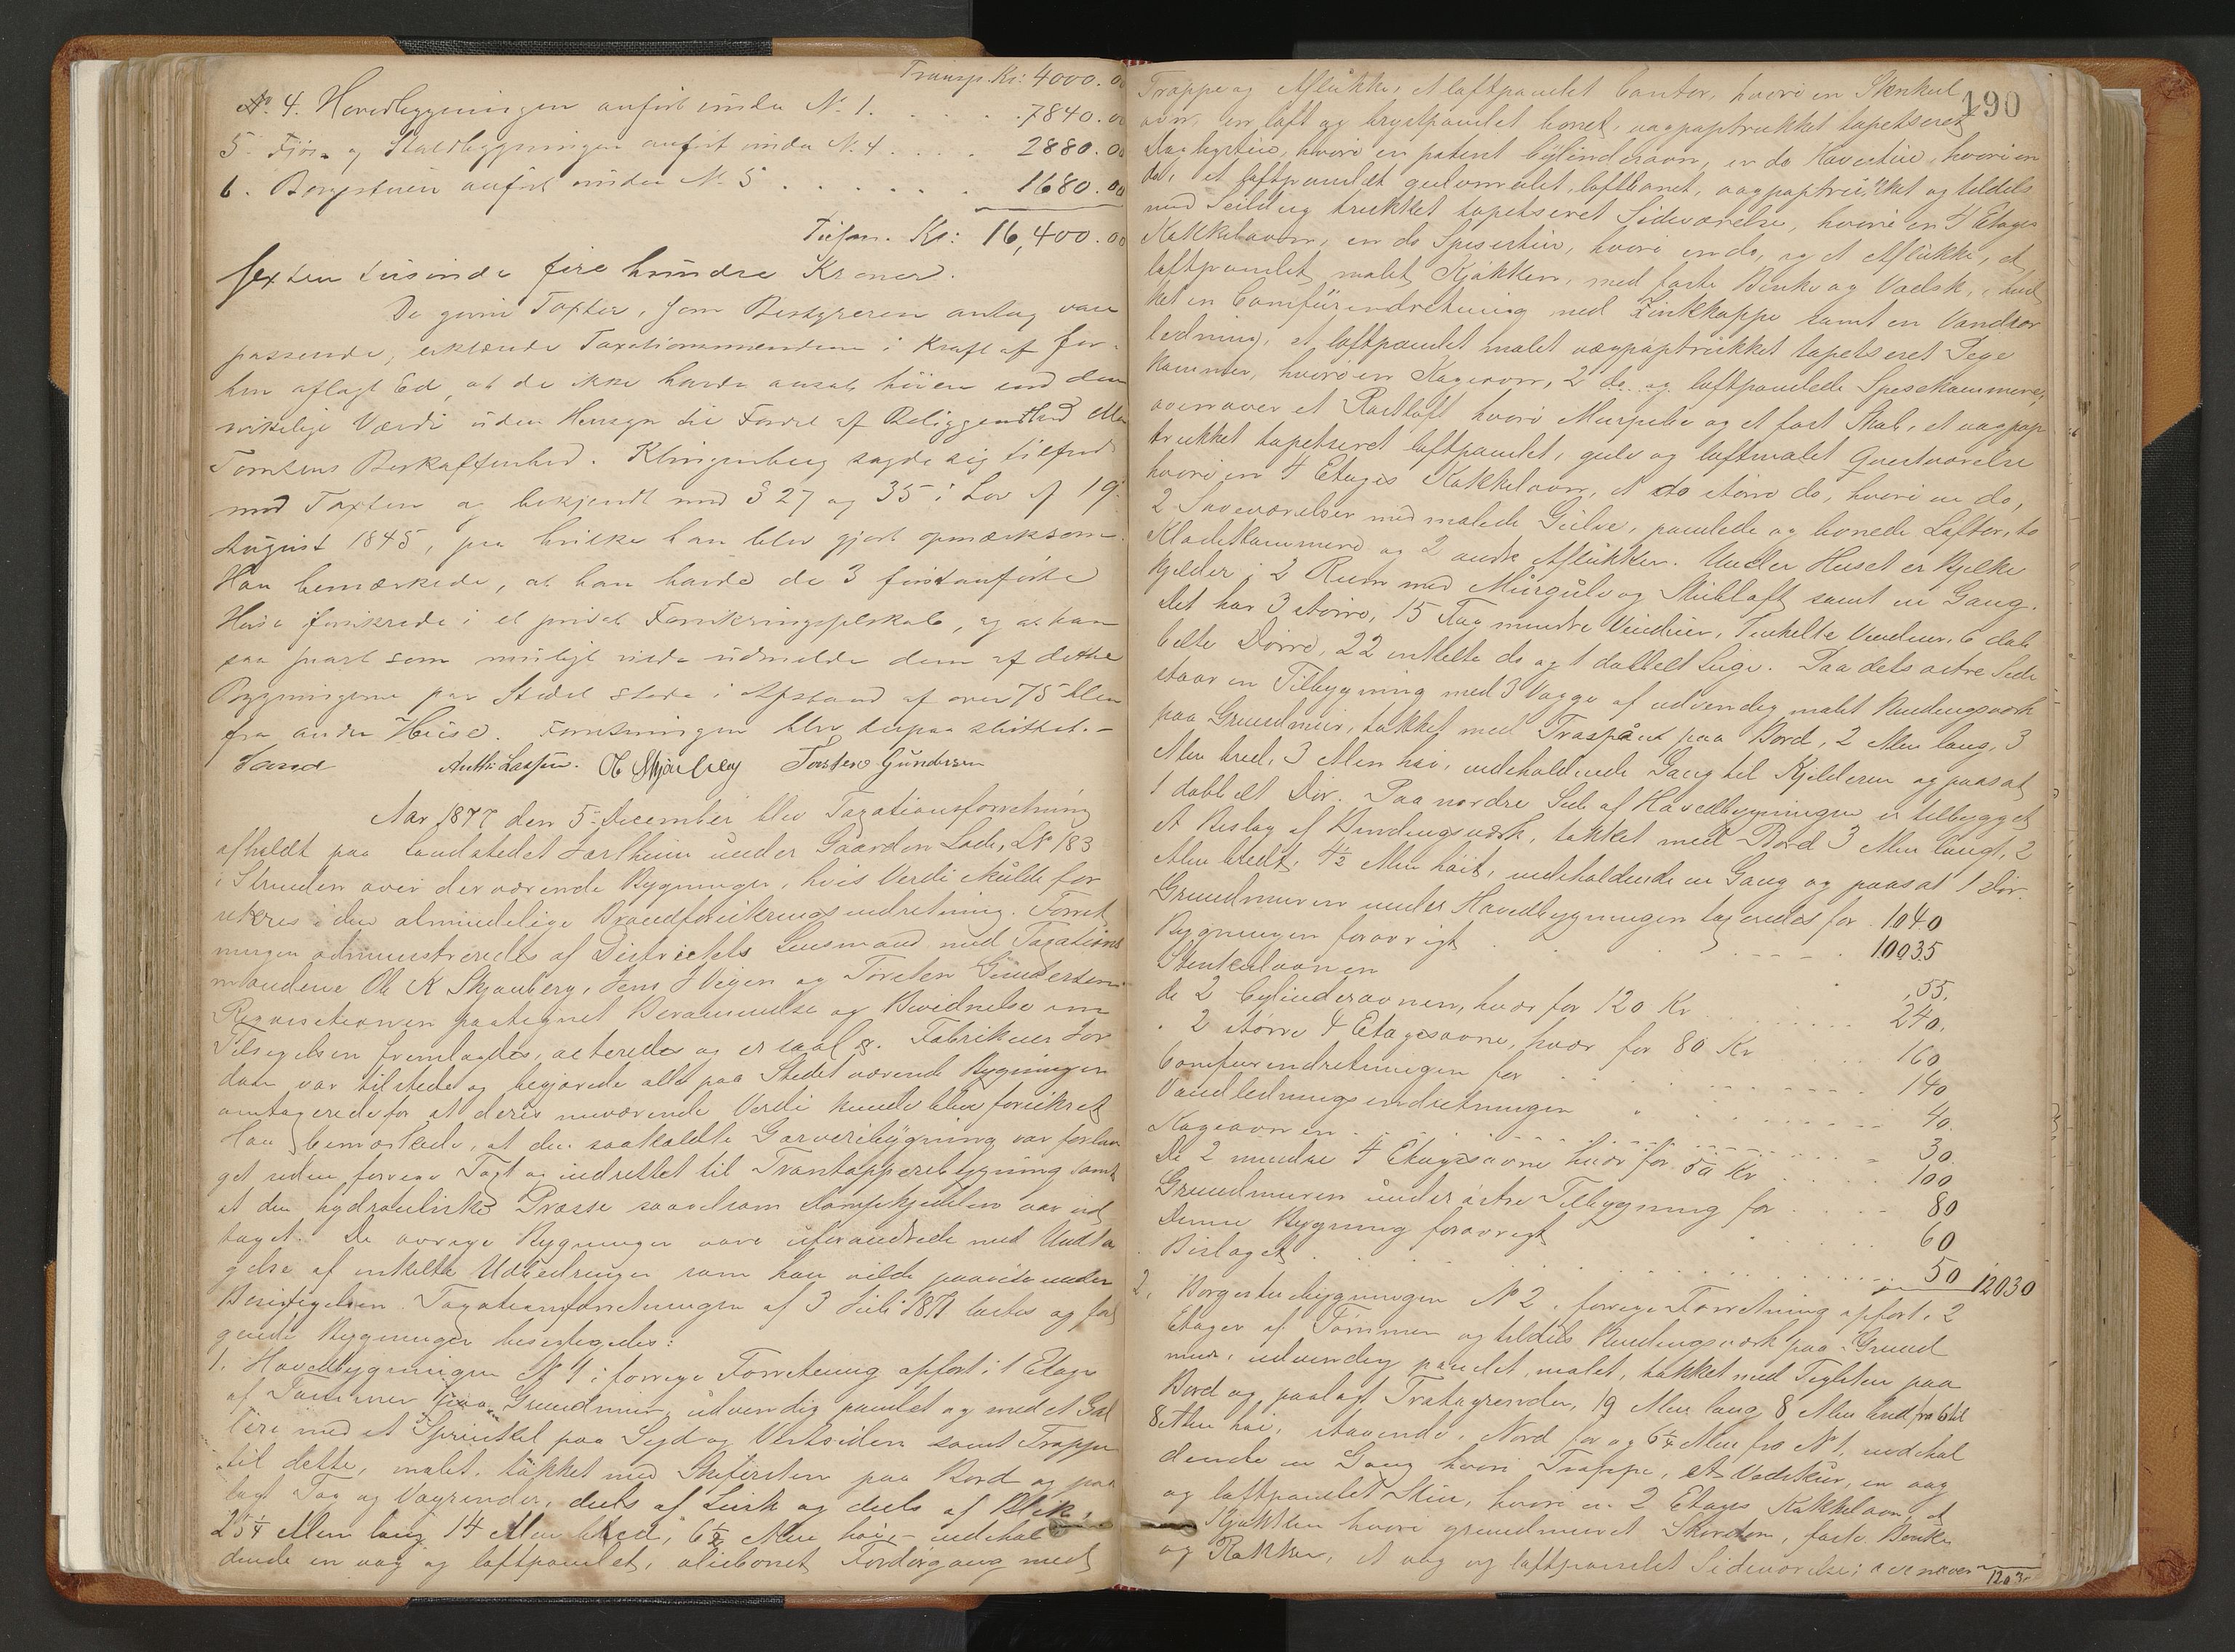 Transp. Kr: 4000.00
No 4. Hovedbygningen anført under No 1. . . . . . 7840.00
5. Fjøs og Staldbygningen anført under No 4 . . . . 2880.00
6. Borgstuen anført under No 5 . . . . . . . 1680.00
Tilsam. Kr: 16,400.00
Sexten tusinde fire hundre Kroner.
De givne Taxter, som Bestyreren antog vare
passende, erklærede Taxationsmændene i Kraft af for-
hen aflagt Ed, at de ikke havde ansat høiere end den
virkelige Værdi uden Hensyn til Fordel af Beliggenhed eller
Tomtens Beskaffenhed. Klingenberg sagde sig tilfreds
med Taxten og bekjendt med § 27 og 35 i Lov af 19
August 1845, paa hvilke han blev gjort opmærksom.
Han bemærkede, at han havde de 3 førstanførte
Huse forsikrede i et privat Forsikringsselskab, og at han
saa snart som muligt vilde udmelde dem af dette
Bygningerne paa Stedet staar i Afstand af over 75 Alen
fra andre Huse. Forretningen blev derpaa sluttet.-
Sand Anth: Lassen. O K Skjanberg Torsten Gundersen
Aar 1877 den 5. December blev Taxationsforretning
afholdt paa Landstedet Jarlheim under Gaarden Lade, L No 183
i Strinden over derværende Bygninger, hvis Verdi skulde for
sikres i den almindelige Brandforsikringsindretning. Forret
ningen administreredes af Districtets Lensmand med Taxations
mændene Ole K Skjanberg, Jens J Vegen og Torsten Gundersen
Requisitionen paategnet Berammelse og Bevidnelse om
Tilsigelsen fremlagdes, acteredes og er saal. Fabrikeier Jor
dan var tilstede og begjærede alle paa Stedet værende Bygninger
omtaxerede for at deres nuværende Verdi kunde blive forsikret
Han bemærkede, at den saakaldte Garveribygning var forlæn
get siden forrige Taxt og indrettet til Trantapperibygning samt
at den hydrauliske Presse saavelsom Dampkjedelen var ud
taget. De øvrige Bygninger vare uforandrede med Undta
gelse af enkelte Udbedringer som han vilde paavise under
Besigtigelsen. Taxationsforretningen af 3 Juli 1871 læstes og føl
gende Bygninger besigtigedes:
1. Hovedbygningen No 1 i forrige Forretning opført i 1 Etage
af Tømmer paa Grundmur, udvendig panelet og med et Gal
leri med et Sprinkel paa Syd og Vestsiden samt Trappe
til dette, malet, tækket med Skifersten paa Bord og paa
lagt Tag og Vagrender, dels af Zink og dels af Blik,
25¼ Alen lang 14 Alen bred, 6½ Alen høi - indehol
dende en væg og loftpanelet, oliebonet Fordørgang med
190
Trappe og Aflukke, et loftpanelet Contor, hvori en Stenkul
ovn, en loft og brystpanelet bonet, vægpaptrukket tapetseret
Dagligstue, hvori en patent Cylinderovn, en do Havestue, hvori en
do, et loftpanelet gulvmalet, loftbonet, vægpaptrukket og tildels
med Seildug trukket tapetseret Sideværelse, hvori en 4 Etages
Kakkelovn, en do Spisestue, hvori en do, og et Aflukke, et
loftpanelet malet Kjøkken, med faste Bænke og Vadsk, hvil
ket en Comfurindretning med Zinkkappe samt en Vandror
ledning, et loftpanelet malet vægpaptrukket tapetseret Pige
kammer, hvori en Kageovn, 2 do og loftpanelede Spisekammere,
ovenover et Rastloft hvori Murpibe og et fast Skab, et vægpap
trukket tapetseret loftpanelet, gulv og loftmalet Gjesteværelse
hvori en 4 Etages Kakkelovn, et do større do, hvori en do,
2 Soveværelser med malede Gulve, panelede og bonede Lofter, to
Klædekammere og 2 andre Aflukker. Under Huset er Kjelke
kjelder i 2 Rum med Murgulv og Stubloft samt en Gang.
Det har 3 større, 15 Fag mindre Vinduer, 1 enkelte Vinduer, 6 dob
belte Dørre, 22 enkelte do og 1 dobbelt Luge. Paa dets østre Side
staar en Tilbygning med 3 Vægge af udvendig malet Bindingsverk
paa Grundmur, tækket med Træspån paa Bord, 2 Alen lang, 3
Alen bred, 3 Alen høi, indeholdende Gang til Kjelderen og paasat
1 dobbelt Dør. Paa nordre Side af Hovedbygningen er tilbygget
et Bislag af Bindingsverk, tækket med Bord 3 Alen langt, 2
Alen bredt, 4½ Alen høit, indeholdende en Gang og paasat 1 Dør.
Grundmuren under Hovedbygningen taxeredes for . 1040
Bygningen forøvrigt . . . . . . 10035
Stenkulovnen 55.
de 2 Cylinderovnen, hver for 120 Kr . . . . . 240.
" 2 større 4 Etagesovne, hver for 80 Kr . . . . 160
Comfurindretningen for . . . . . . 140
Vandledningsindretningen " . . . . 40.
Kageovnen . . . . . . . . 30
De 2 mindre 4 Etagesovne hver for 50 Kr . . . . 100
Grundmuren under østre Tilbygning for . . . . 80
Denne Bygning forøvrigt . . . . . 60
Bislaget . . . . . . . . . 50 12030
2, Borgestuebygningen No 2, forrige Forretning opført i 2
Etager af Tømmer og tildels Bindingsverk paa Grund
mur, udvendig panelet, malet, tækket med Teglsten paa
Bord og paalagt Trætagrender, 19 Alen lang 8 Alen bred fra 6 til
8 Alen høi, staaende i Nord for og 6¼ Alen fra No 1, indehol
dende en Gang hvori Trappe, et Vadskur, en væg
og loftpanelet Stue, hvori en 2 Etages Kakkelovn, et
Kjøkken hvori grundmuret Skorsten, faste Bænke
og Rækker, et væg og loftpanelet Sideværelse; ovenover
1203